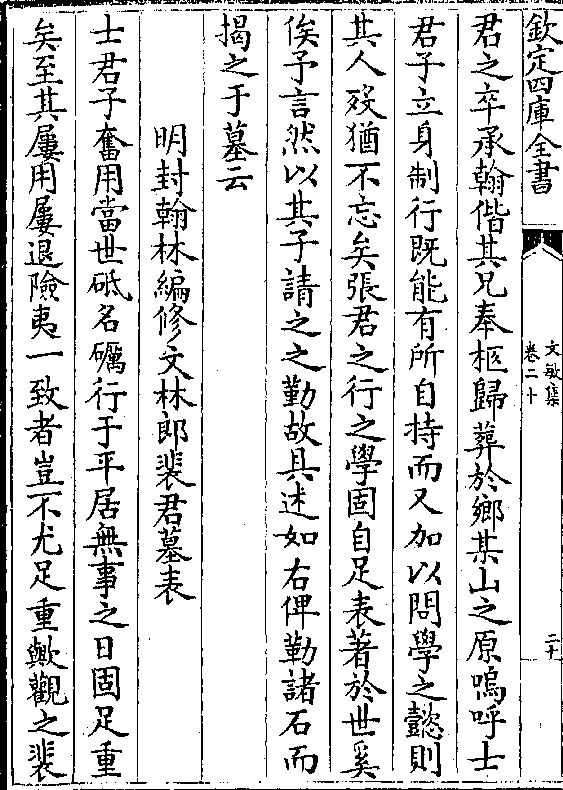 欽定四庫全書
文敏集
卷二十
二十
君之卒承翰偕其兄奉柩歸葬於鄉某山之原嗚呼士
君子立身制行既能有所自持而又加以問學之懿則
其人歿猶不忘矣張君之行之學固自足表著於世奚
俟予言然以其子請之之勤故具述如右俾勒諸石而
揭之于墓云
明封翰林編修文林郎裴君墓表
士君子奮用當世砥名礪行于平居無事之日固足重
矣至其屢用屢退險夷一致者豈不尤足重歟觀之裴